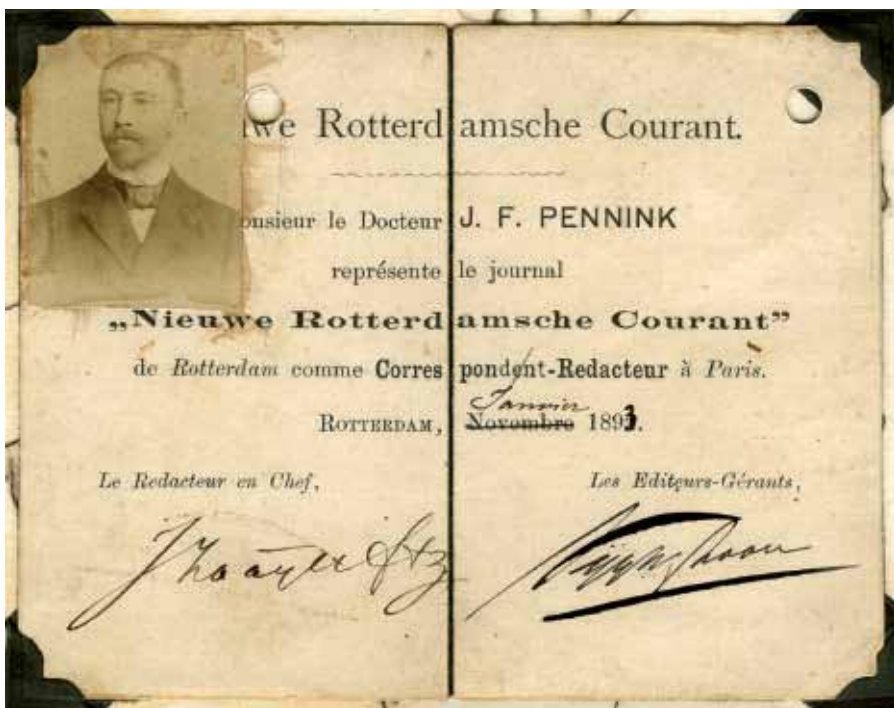 uwe Rotterdamsche Courant.
onsieur le Docteur J. F. PENNINK
représente le journal
„Nieuwe Rotterdamsche Courant”
de Rotterdam comme Correspondent-Redacteur à Paris.
Janvier
ROTTERDAM, Novembre 1893.
Le Redacteur en Chef, Les Editeurs-Gérants,